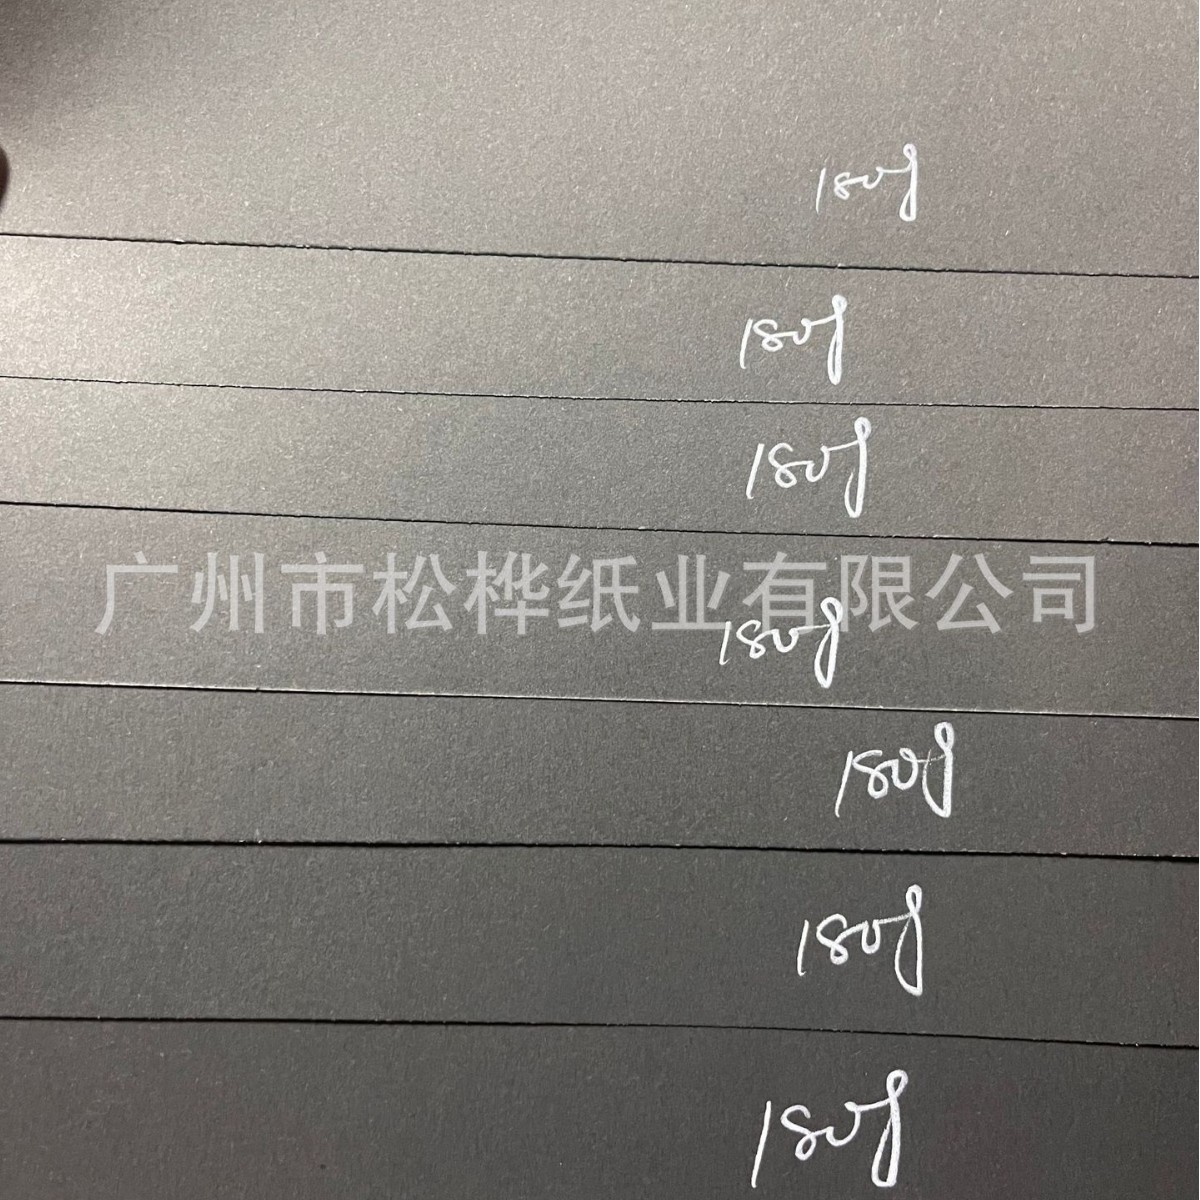 180g
180g
180g
广州市松桦纸业有限公司
180g
180g
180g
180g